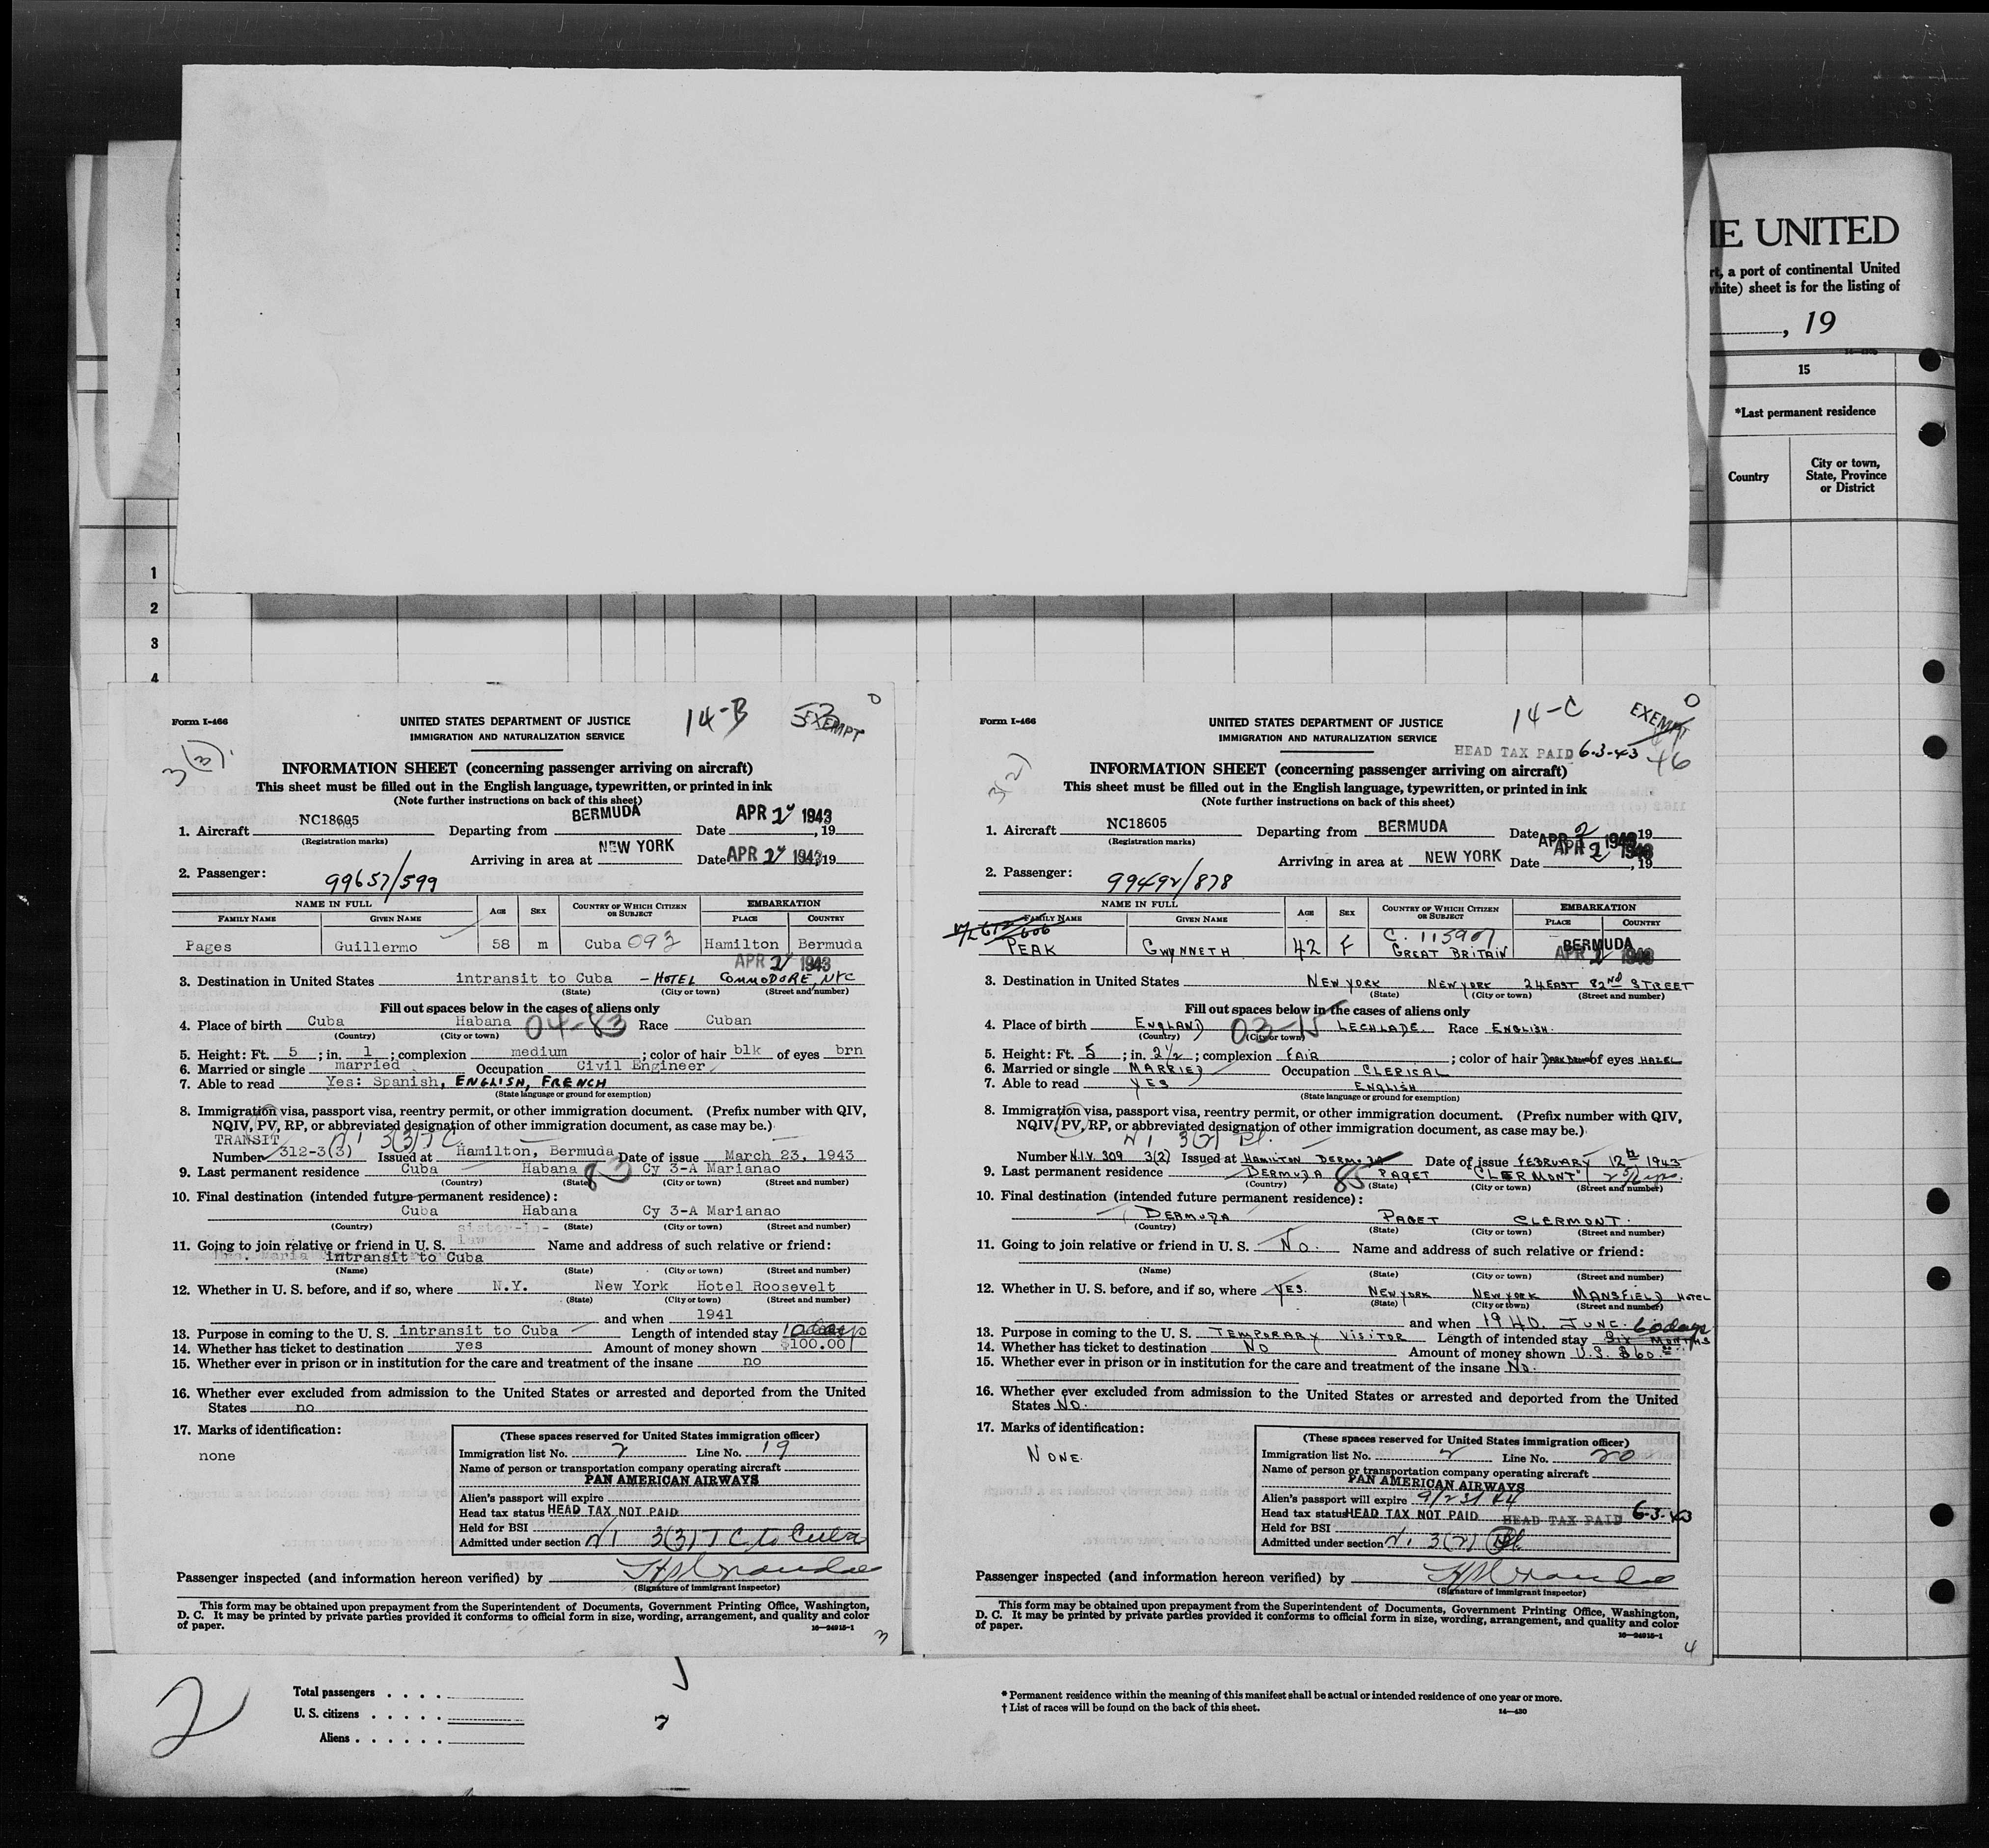 HE UNITED
rt, a port of continental United
white) sheet is for the listing of
, 19
15
*Last permanent residence
Country
City or town,
State, Province
or District
1
2
3
4
Form I-466
UNITED STATES DEPARTMENT OF JUSTICE
IMMIGRATION AND NATURALIZATION SERVICE
14-B
53
EXEMPT
0
3(3).
INFORMATION SHEET (concerning passenger arriving on aircraft)
This sheet must be filled out in the English language, typewritten, or printed in ink
(Note further instructions on back of this sheet)
1. Aircraft NC18605 Departing from BERMUDA Date APR 2 1943, 19
(Registration marks)
Arriving in area at NEW YORK Date APR 2 1943, 19
2. Passenger: 99657/599
NAME IN FULL AGE SEX COUNTRY OF WHICH CITIZEN OR SUBJECT EMBARKATION
FAMILY NAME GIVEN NAME PLACE COUNTRY
Pages Guillermo 58 m Cuba 093 Hamilton Bermuda
APR 2 1943
3. Destination in United States intransit to Cuba - HOTEL COMMODORE, NYC
(State) (City or town) (Street and number)
Fill out spaces below in the cases of aliens only
4. Place of birth Cuba Habana 04-83 Race Cuban
(Country) (City or town)
5. Height: Ft. 5 ; in. 1 ; complexion medium ; color of hair blk of eyes brn
6. Married or single married Occupation Civil Engineer
7. Able to read Yes: Spanish, ENGLISH, FRENCH
(State language or ground for exemption)
8. Immigration visa, passport visa, reentry permit, or other immigration document. (Prefix number with QIV,
NQIV, PV, RP, or abbreviated designation of other immigration document, as case may be.)
TRANSIT 3(3) TC.
Number 312-3(3) Issued at Hamilton, Bermuda Date of issue March 23, 1943
9. Last permanent residence Cuba Habana 83 Cy 3-A Marianao
(Country) (State) (City or town) (Street and number)
10. Final destination (intended future permanent residence):
Cuba Habana Cy 3-A Marianao
(Country) (State) (City or town) (Street and number)
sister-in-
11. Going to join relative or friend in U. S. law Name and address of such relative or friend:
intransit to Cuba
(Name) (State) (City or town) (Street and number)
12. Whether in U. S. before, and if so, where N.Y. New York Hotel Roosevelt
(State) (City or town) (Street and number)
and when 1941
13. Purpose in coming to the U. S. intransit to Cuba Length of intended stay 10 days
14. Whether has ticket to destination yes Amount of money shown $100.00
15. Whether ever in prison or in institution for the care and treatment of the insane no
16. Whether ever excluded from admission to the United States or arrested and deported from the United
States no
17. Marks of identification:
none
(These spaces reserved for United States immigration officer)
Immigration list No. 2 Line No. 19
Name of person or transportation company operating aircraft
PAN AMERICAN AIRWAYS
Alien's passport will expire
Head tax status HEAD TAX NOT PAID
Held for BSI
Admitted under section 3(3) TC to Cuba
Passenger inspected (and information hereon verified) by
(Signature of immigrant inspector)
This form may be obtained upon prepayment from the Superintendent of Documents, Government Printing Office, Washington,
D. C. It may be printed by private parties provided it conforms to official form in size, wording, arrangement, and quality and color
of paper.
16—24915-1
3
Form I-466
UNITED STATES DEPARTMENT OF JUSTICE
IMMIGRATION AND NATURALIZATION SERVICE
14-C
EXEMPT
0
HEAD TAX PAID 6-3-43
46
3(2)
INFORMATION SHEET (concerning passenger arriving on aircraft)
This sheet must be filled out in the English language, typewritten, or printed in ink
(Note further instructions on back of this sheet)
1. Aircraft NC18605 Departing from BERMUDA Date APR 2 1943, 19
(Registration marks)
Arriving in area at NEW YORK Date APR 2 1943, 19
2. Passenger: 99492/878
NAME IN FULL AGE SEX COUNTRY OF WHICH CITIZEN OR SUBJECT EMBARKATION
FAMILY NAME GIVEN NAME PLACE COUNTRY
606
PEAK GWYNNETH 42 F C. 115907 GREAT BRITAIN BERMUDA
APR 2 1943
3. Destination in United States NEW YORK NEW YORK 24 EAST 82nd STREET
(State) (City or town) (Street and number)
Fill out spaces below in the cases of aliens only
4. Place of birth ENGLAND 03-15 LECHLADE. Race ENGLISH.
(Country) (City or town)
5. Height: Ft. 5 ; in. 2 1/2 ; complexion FAIR ; color of hair DARK BROWN of eyes HAZEL
6. Married or single MARRIED Occupation CLERICAL
7. Able to read YES ENGLISH
(State language or ground for exemption)
8. Immigration visa, passport visa, reentry permit, or other immigration document. (Prefix number with QIV,
NQIV, PV, RP, or abbreviated designation of other immigration document, as case may be.)
3(2) Pl.
Number N.I.V. 309 3(2) Issued at HAMILTON BERMUDA Date of issue FEBRUARY 12th 1943
9. Last permanent residence BERMUDA 85 PAGET "CLERMONT"
(Country) (State) (City or town) (Street and number)
10. Final destination (intended future permanent residence):
BERMUDA PAGET CLERMONT.
(Country) (State) (City or town) (Street and number)
11. Going to join relative or friend in U. S. No. Name and address of such relative or friend:
(Name) (State) (City or town) (Street and number)
12. Whether in U. S. before, and if so, where YES. NEW YORK NEW YORK MANSFIELD HOTEL
(State) (City or town) (Street and number)
and when 1940. JUNE. 60 days
13. Purpose in coming to the U. S. TEMPORARY VISITOR Length of intended stay SIX MONTHS
14. Whether has ticket to destination NO Amount of money shown U.S. $60.00
15. Whether ever in prison or in institution for the care and treatment of the insane No.
16. Whether ever excluded from admission to the United States or arrested and deported from the United
States No.
17. Marks of identification:
NONE.
(These spaces reserved for United States immigration officer)
Immigration list No. 2 Line No. 20
Name of person or transportation company operating aircraft
PAN AMERICAN AIRWAYS
Alien's passport will expire 9/23/44
Head tax status HEAD TAX NOT PAID HEAD TAX PAID 6-3-43
Held for BSI
Admitted under section 3(2) Pl
Passenger inspected (and information hereon verified) by
(Signature of immigrant inspector)
This form may be obtained upon prepayment from the Superintendent of Documents, Government Printing Office, Washington,
D. C. It may be printed by private parties provided it conforms to official form in size, wording, arrangement, and quality and color
of paper.
16—24915-1
4
2
Total passengers . . . .
U. S. citizens . . . . .
Aliens . . . . . .
7
* Permanent residence within the meaning of this manifest shall be actual or intended residence of one year or more.
† List of races will be found on the back of this sheet.
14—430